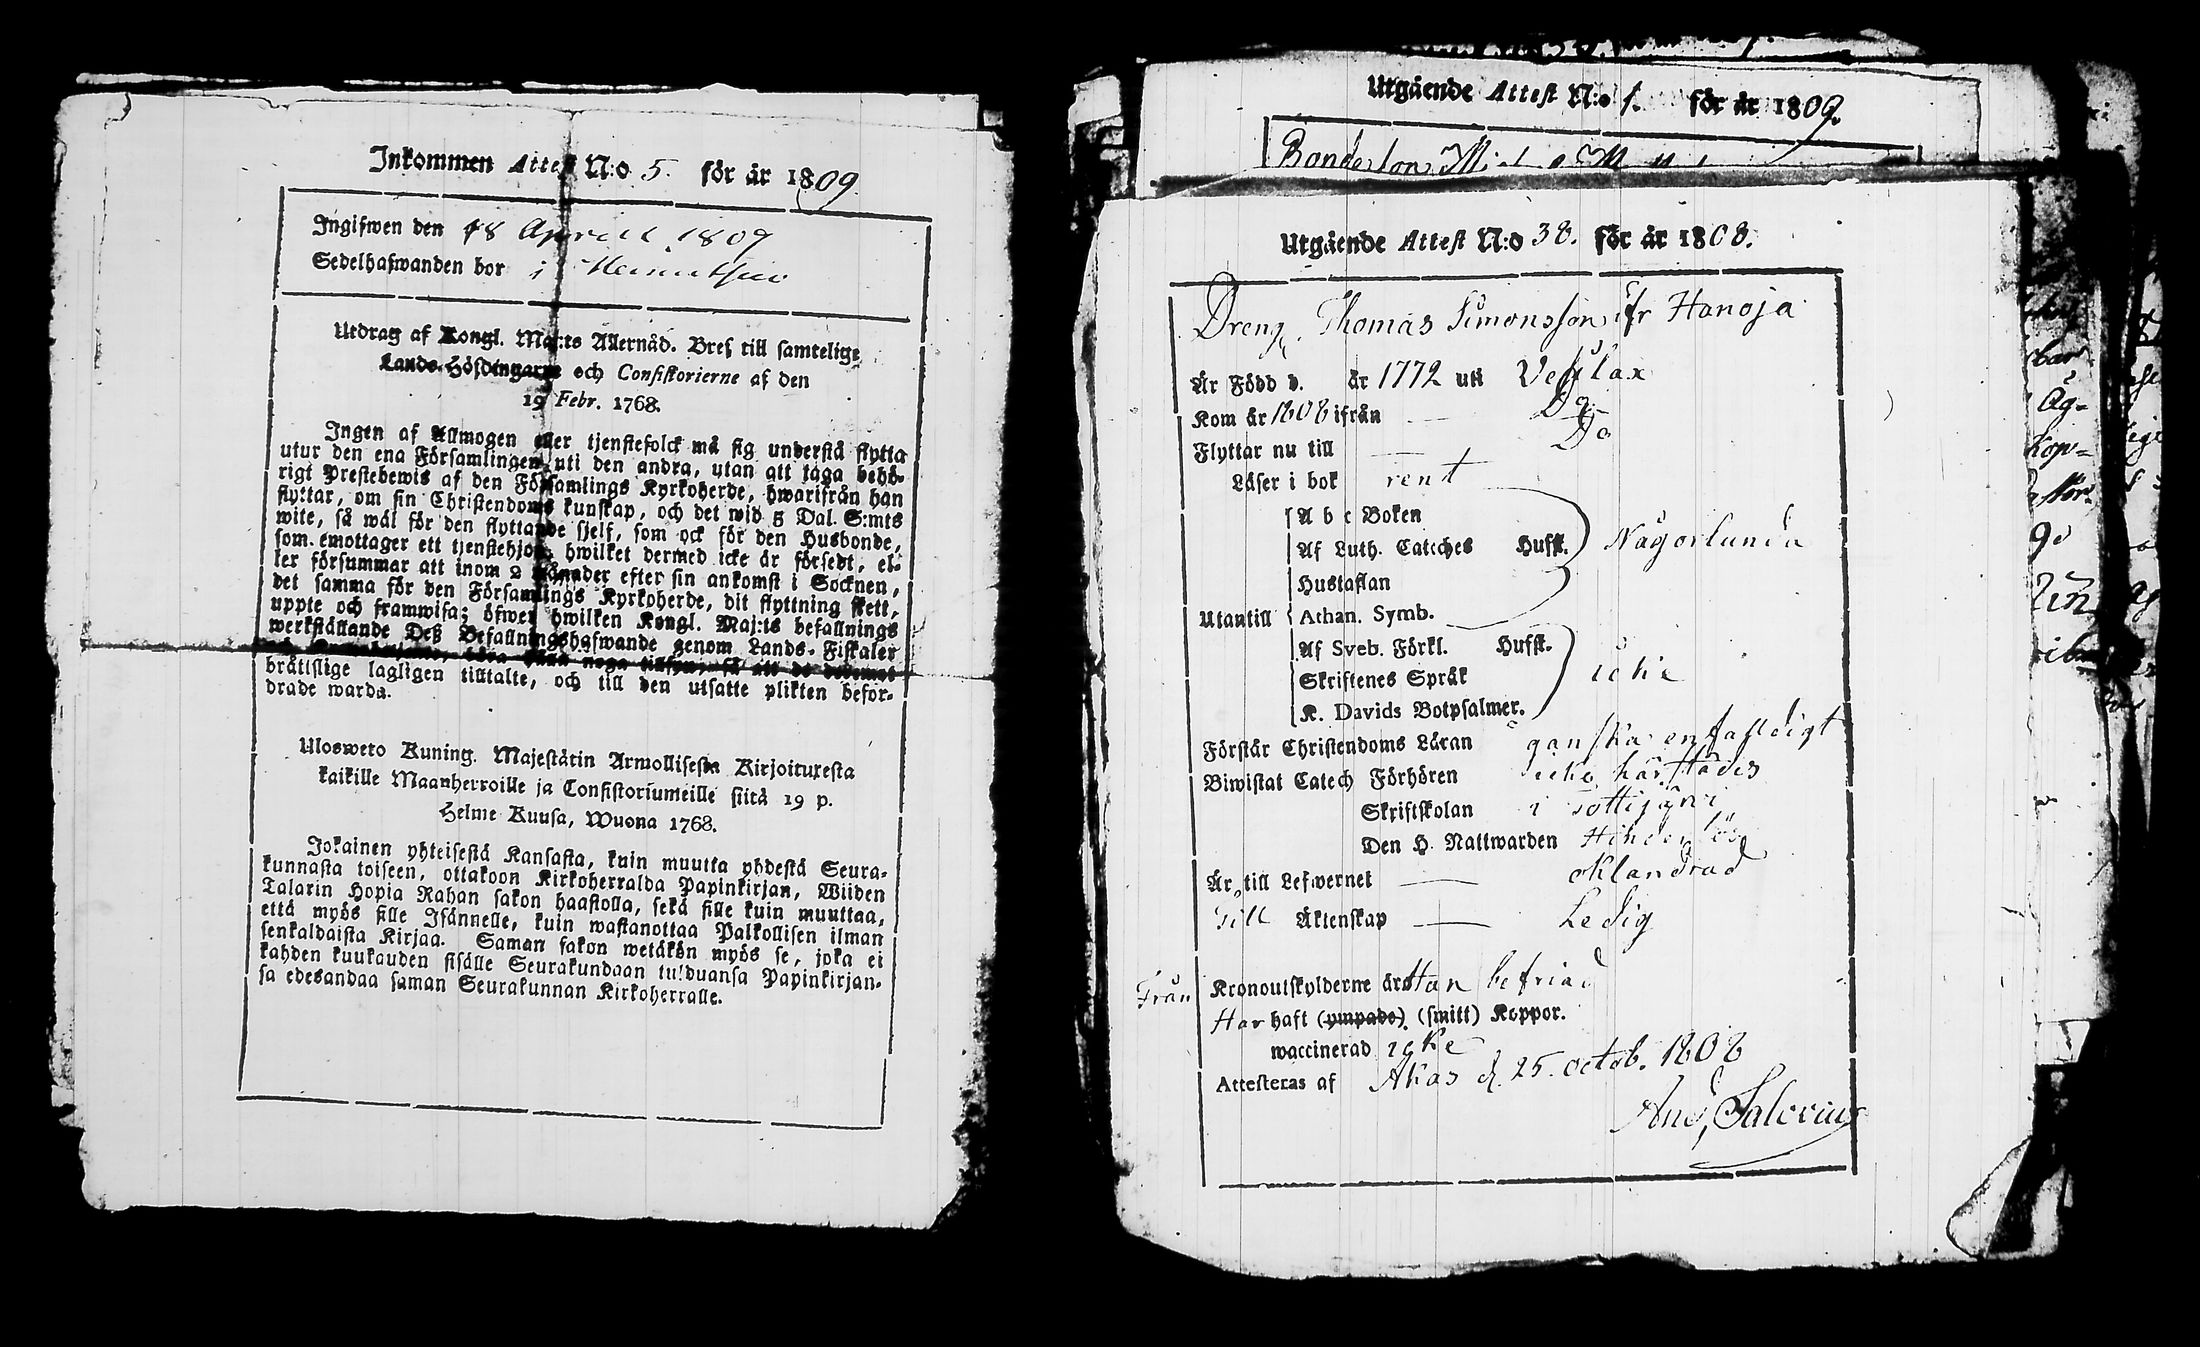 Inkommen Attest N:o 5. för år 1809
Ingifwen den 18 Aprill 1809
Sedelhafwanden bor i
Utdrag af Kongl. Maj:ts Allernåd. Bref till samtelige
Lands-Höfdingarne och Consistorierne af den
19 Febr. 1768.
Ingen af Allmogen eller tjenstefolck må sig understå flytta
utur den ena Församlingen uti den andra, utan att taga behö-
rigt Prestebewis af den Församlings Kyrkoherde, hwarifrån han
flyttar, om sin Christendoms kunskap, och det wid 5 Dal. S:mts
wite, så wäl för den flyttande sjelf, som ock för den Husbonde,
som emottager ett tjenstehjon, hwilket dermed icke är försedt, el-
ler försummar att inom 2 månader efter sin ankomst i Socknen,
det samma för den Församlings Kyrkoherde, dit flyttning skett,
uppte och framwisa; öfwer hwilken Kongl. Maj:ts befallnings
werkställande Deß Befallningshafwande genom Lands-Fiskaler
noga tillsyn, så att de
bråttslige lagligen tilltalte, och till den utsatte plikten befor-
drade warda.
Ulosweto Kuning. Majestätin Armollisesta Kirjoituxesta
kaikille Maanherroille ja Consistoriumeille siitä 19 p.
Helme Kuusa, Wuona 1768.
Jokainen yhteisestä Kansasta, kuin muutta yhdestä Seura-
kunnasta toiseen, ottakoon Kirkoherralda Papinkirjan, Wiiden
Talarin Hopia Rahan sakon haastolla, sekä sille kuin muuttaa,
että myös sille Isännelle, kuin wastanottaa Palkollisen ilman
senkaldaista Kirjaa. Saman sakon wetäkön myös se, joka ei
kahden kuukauden sisälle Seurakundaan tulduansa Papinkirjan-
sa edesandaa saman Seurakunnan Kirkoherralle.
Utgående Attest N:o 1. för år 1809.
Bondeson
Utgående Attest N:o 38. för år 1808.
Dreng. Thomas Simonsson ifr Hanoja
Är Född d. år 1772 uti Vesilax
Kom år 1808 ifrån Do
Flyttar nu till Do
Läser i bok rent
A b c Boken
Af Luth. Catches Hufst. Någorlunda
Hustaflan
Utantill Athan. Symb.
Af Sveb. Förkl. Hufst.
Skriftenes Språk icke
K. Davids Botpsalmer.
Förstår Christendoms Läran ganska enfaldigt
Biwistat Catech Förhören icke härstädes
Skriftskolan i Tottijärvi
Den H. Nattwarden Hinderlös
Är till Lefwernet oklandrad
Till Äktenskap Ledig
Från Kronoutskylderne är Han befriad
Har haft (ympade). (smitt) Koppor.
waccinerad icke
Attesteras af Akas d. 25. octob. 1808
And. Salovius